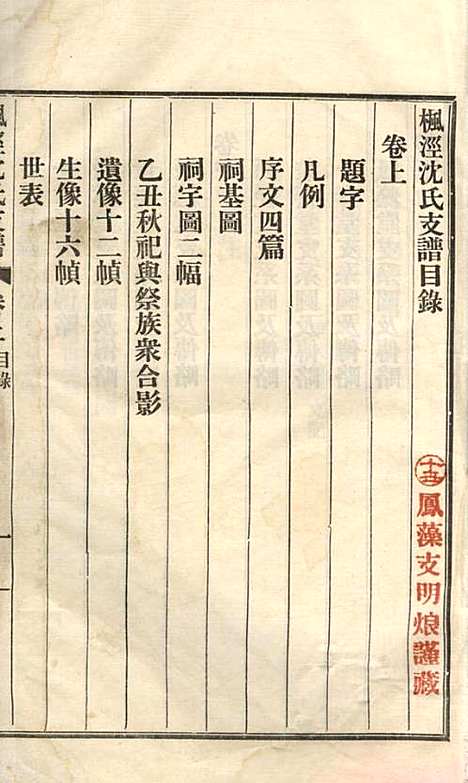 楓涇沈氏支譜目錄
十五
鳳藻支明烺謹藏
卷上
題字
凡例
序文四篇
祠基圖
祠宇圖二幅
乙丑秋祀與祭族衆合影
遺像十二幀
生像十六幀
世表
楓涇沈氏支譜
卷上
目錄
一